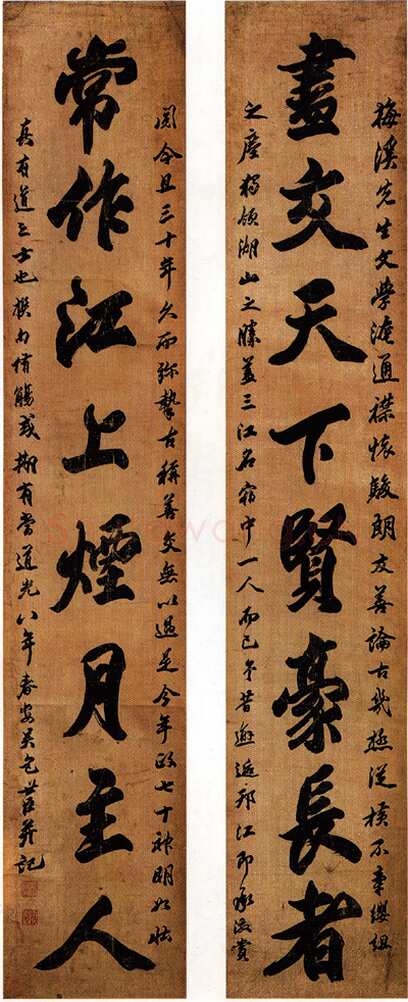 梅溪先生文學淹通襟懷駿朗友善論古幾極從橫不牽纓組
盡交天下賢豪長者
之塵獨領湖山之勝蓋三江名宿中一人而已昔邂逅邗江即承激賞
閱今且三十年久而彌摯古稱善交無以過是今年政七十神明如壯
常作江上煙月主人
真有道之士也撰句侑觴或有當道光八年春安吳包世臣并記